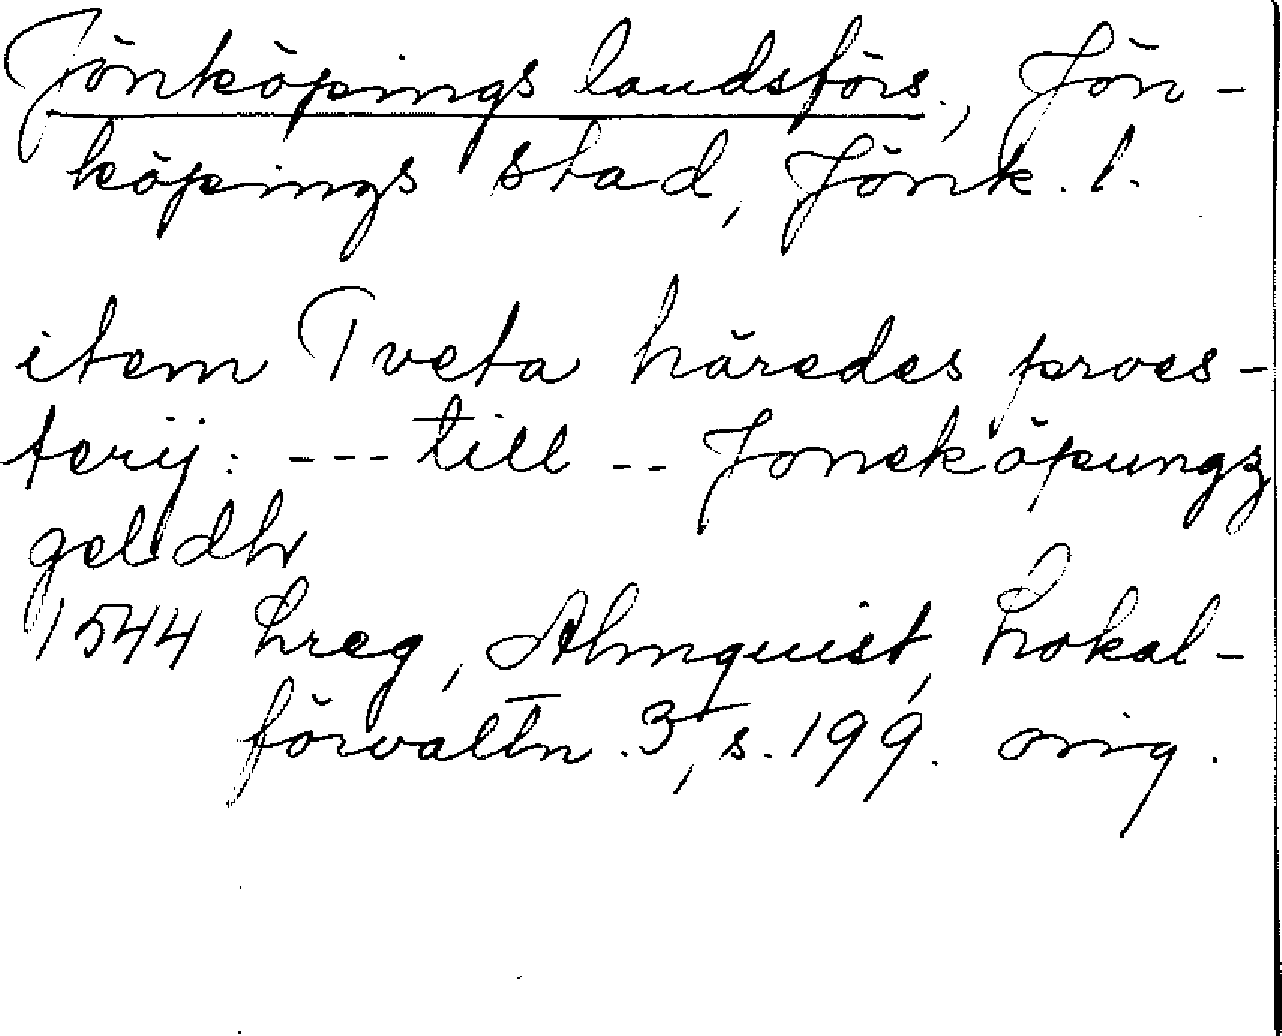 Jönköpings landsförs., Jön-
köpings stad, Jönk. l.
item Tveta häredes proes-
terij: --- till -- Joneköpungz
geldh
1544 Lreg, Almquist, Lokal-
förvaltn. 3, s. 199. orig.